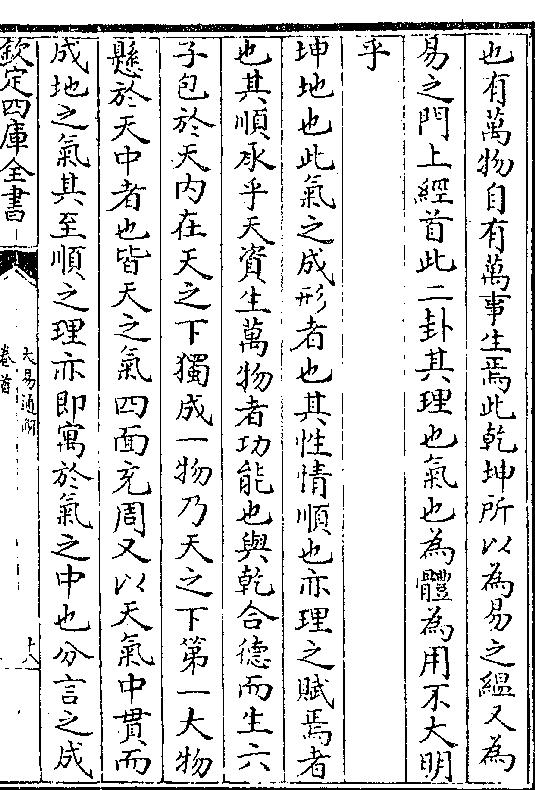 也有萬物自有萬事生焉此乾坤所以為易之緼又為
易之門上經首此二卦其理也氣也為體為用不大明
乎
坤地也此氣之成形者也其性情順也亦理之賦焉者
也其順承乎天資生萬物者功能也與乾合德而生六
子包於天內在天之下獨成一物乃天之下第一大物
懸於天中者也皆天之氣四面充周又以天氣中貫而
成地之氣其至順之理亦即寓於氣之中也分言之成
欽定四庫全書
大易通解
卷首
十八